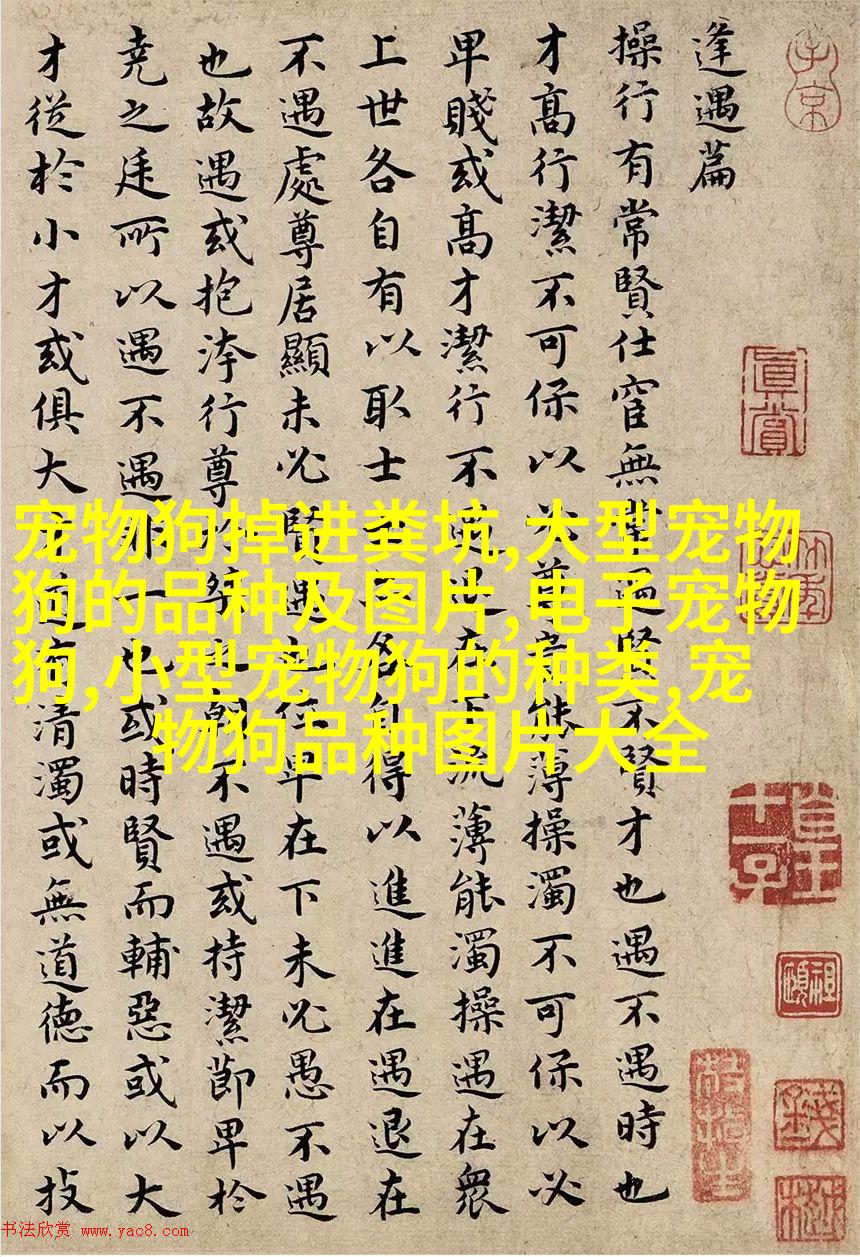 逢遇篇
操行有常賢仕宦無常遇賢不賢才也遇不遇時也
才高行潔不可保以必尊貴能薄操濁不可保以必
卑賤或高才潔行不遇在下流薄能濁操遇在眾
上世各自有以取士士亦各自得以進進在遇退在
不遇處尊居顯未必賢遇也位卑在下未必愚不遇
也故遇或抱洿行尊於桀之朝不遇或持潔節卑於
堯之廷所以遇不遇非一也或時賢而輔惡或以大
才從於小才或俱大才道有清濁或無道德而以技
宠物狗掉进粪坑,大型宠物
狗的品种及图片,电子宠物
狗,小型宠物狗的种类,宠
物狗品种图片大全
真賞
书法欣赏 www.yac8.com